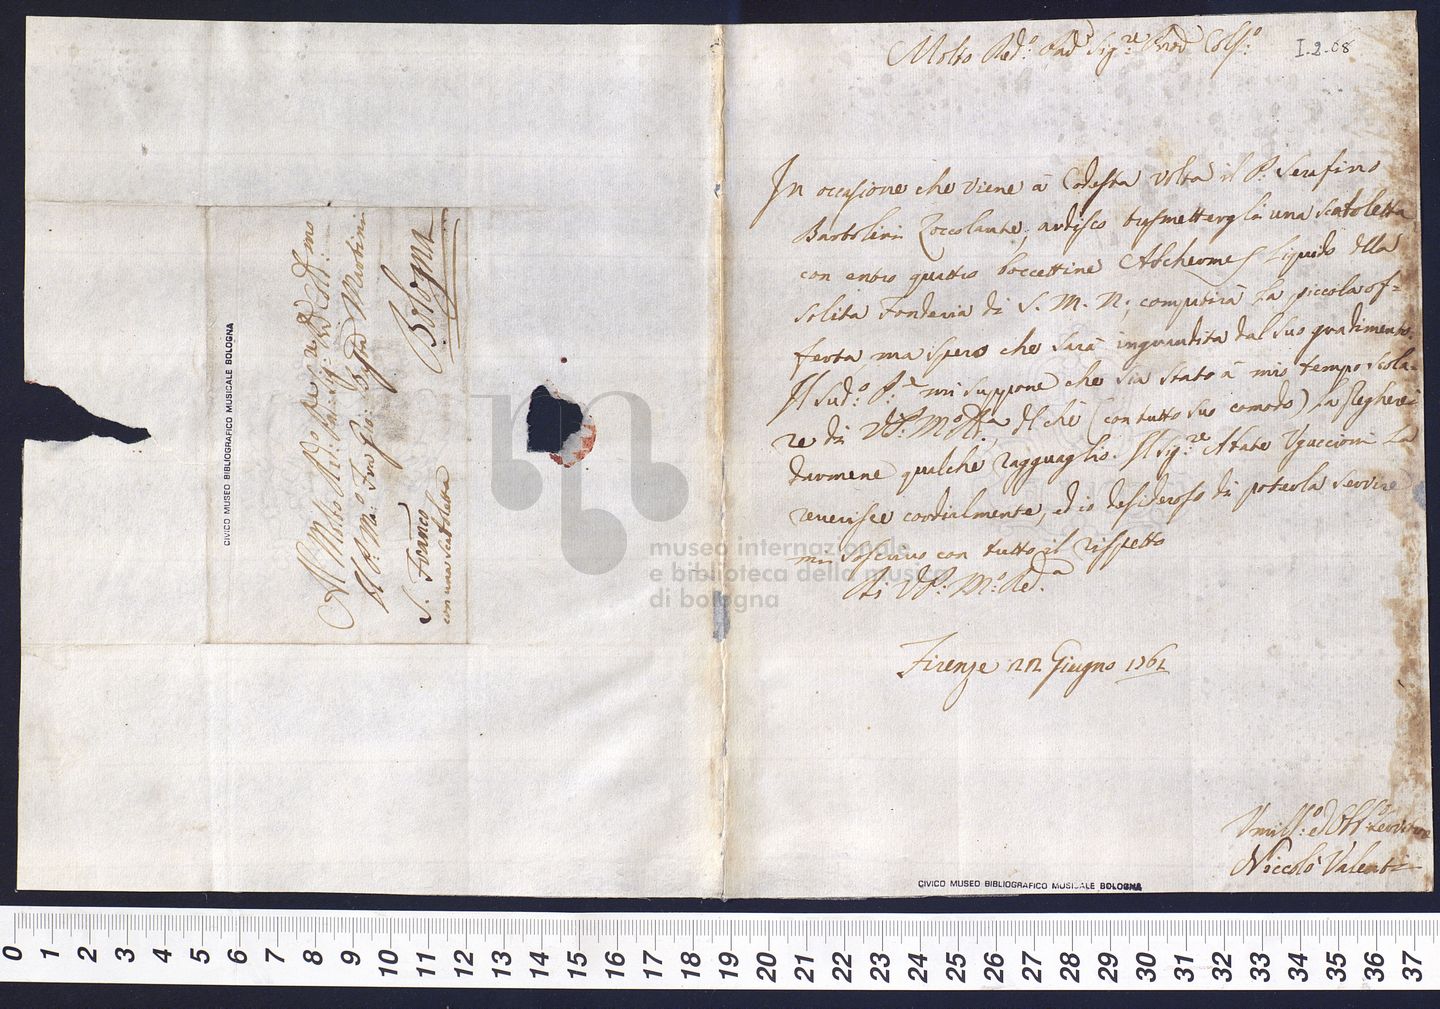 Molto Red.º Pad.e Sig.re Pron Colᵐᵒ:
I.2.68
In occasione che viene à Codesta volta il P. Serafino
Bartolini Zoccolante, ardisco trasmettergli una scatoletta
con entro quattro boccettine Alchermes Liquido della
solita Fonderia di S. M. N; compatirà la piccola of=
ferta, ma spero che sarà ingrandita dal suo gradimento.
Il sud.º P.e mi suppone che sia stato à mio tempo scola-
re di V.P. M.º R.da, del che (con tutto suo comodo) la pregherei
darmene qualche ragguaglio. Il Sig.re Abate Uguccioni La
reverisce cordialmente, ed io desideroso di poterla servire
mi soscrivo con tutto il rispetto
Di V.P. M.º Red.a
Firenze 22 Giugno 1761
Umiliss.º ed Obb.º servitore
Niccolò Valenti
CIVICO MUSEO BIBLIOGRAFICO MUSICALE BOLOGNA
Al Molto Red.º Pad.re Sig.re
Il P. M.º Fra Gio: Battã Martini
Bologna
S. Franc̃o
con una scatoletta
CIVICO MUSEO BIBLIOGRAFICO MUSICALE BOLOGNA
museo internazionale
e biblioteca della musica
di bologna
0 1 2 3 4 5 6 7 8 9 10 11 12 13 14 15 16 17 18 19 20 21 22 23 24 25 26 27 28 29 30 31 32 33 34 35 36 37